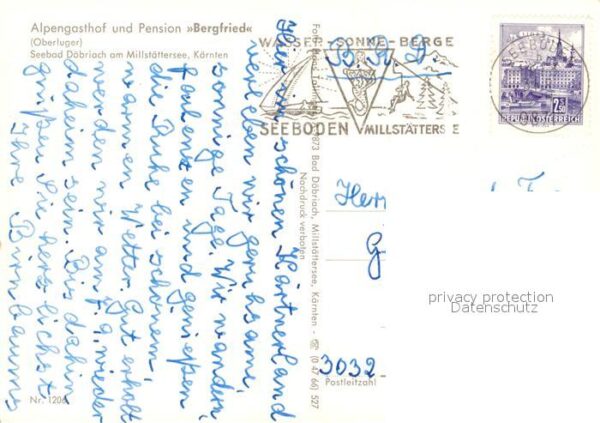 Alpengasthof und Pension »Bergfried«
(Oberluger)
Seebad Döbriach am Millstättersee, Kärnten
WASSER-SONNE-BERGE
SEEBODEN MILLSTÄTTERSE E
2.50
REPUBLIK ÖSTERREICH
B.R.D.
Hier im schönen Kärtnerland
verleben wir geruhsame,
sonnige Tage. Wir wandern,
faulenzen und genießen
die Ruhe bei schönem,
warmen Wetter. Gut erholt
werden wir am 7.9. wieder
daheim sein. Bis dahin
grüßen Sie herzlichst
Ihre Birnbaums
9873 Bad Döbriach, Millstättersee, Kärnten - ☏ (0 47 66) 527
Nachdruck verboten
Herr
G
3032
Postleitzahl
privacy protection
Datenschutz
Nr. 1206